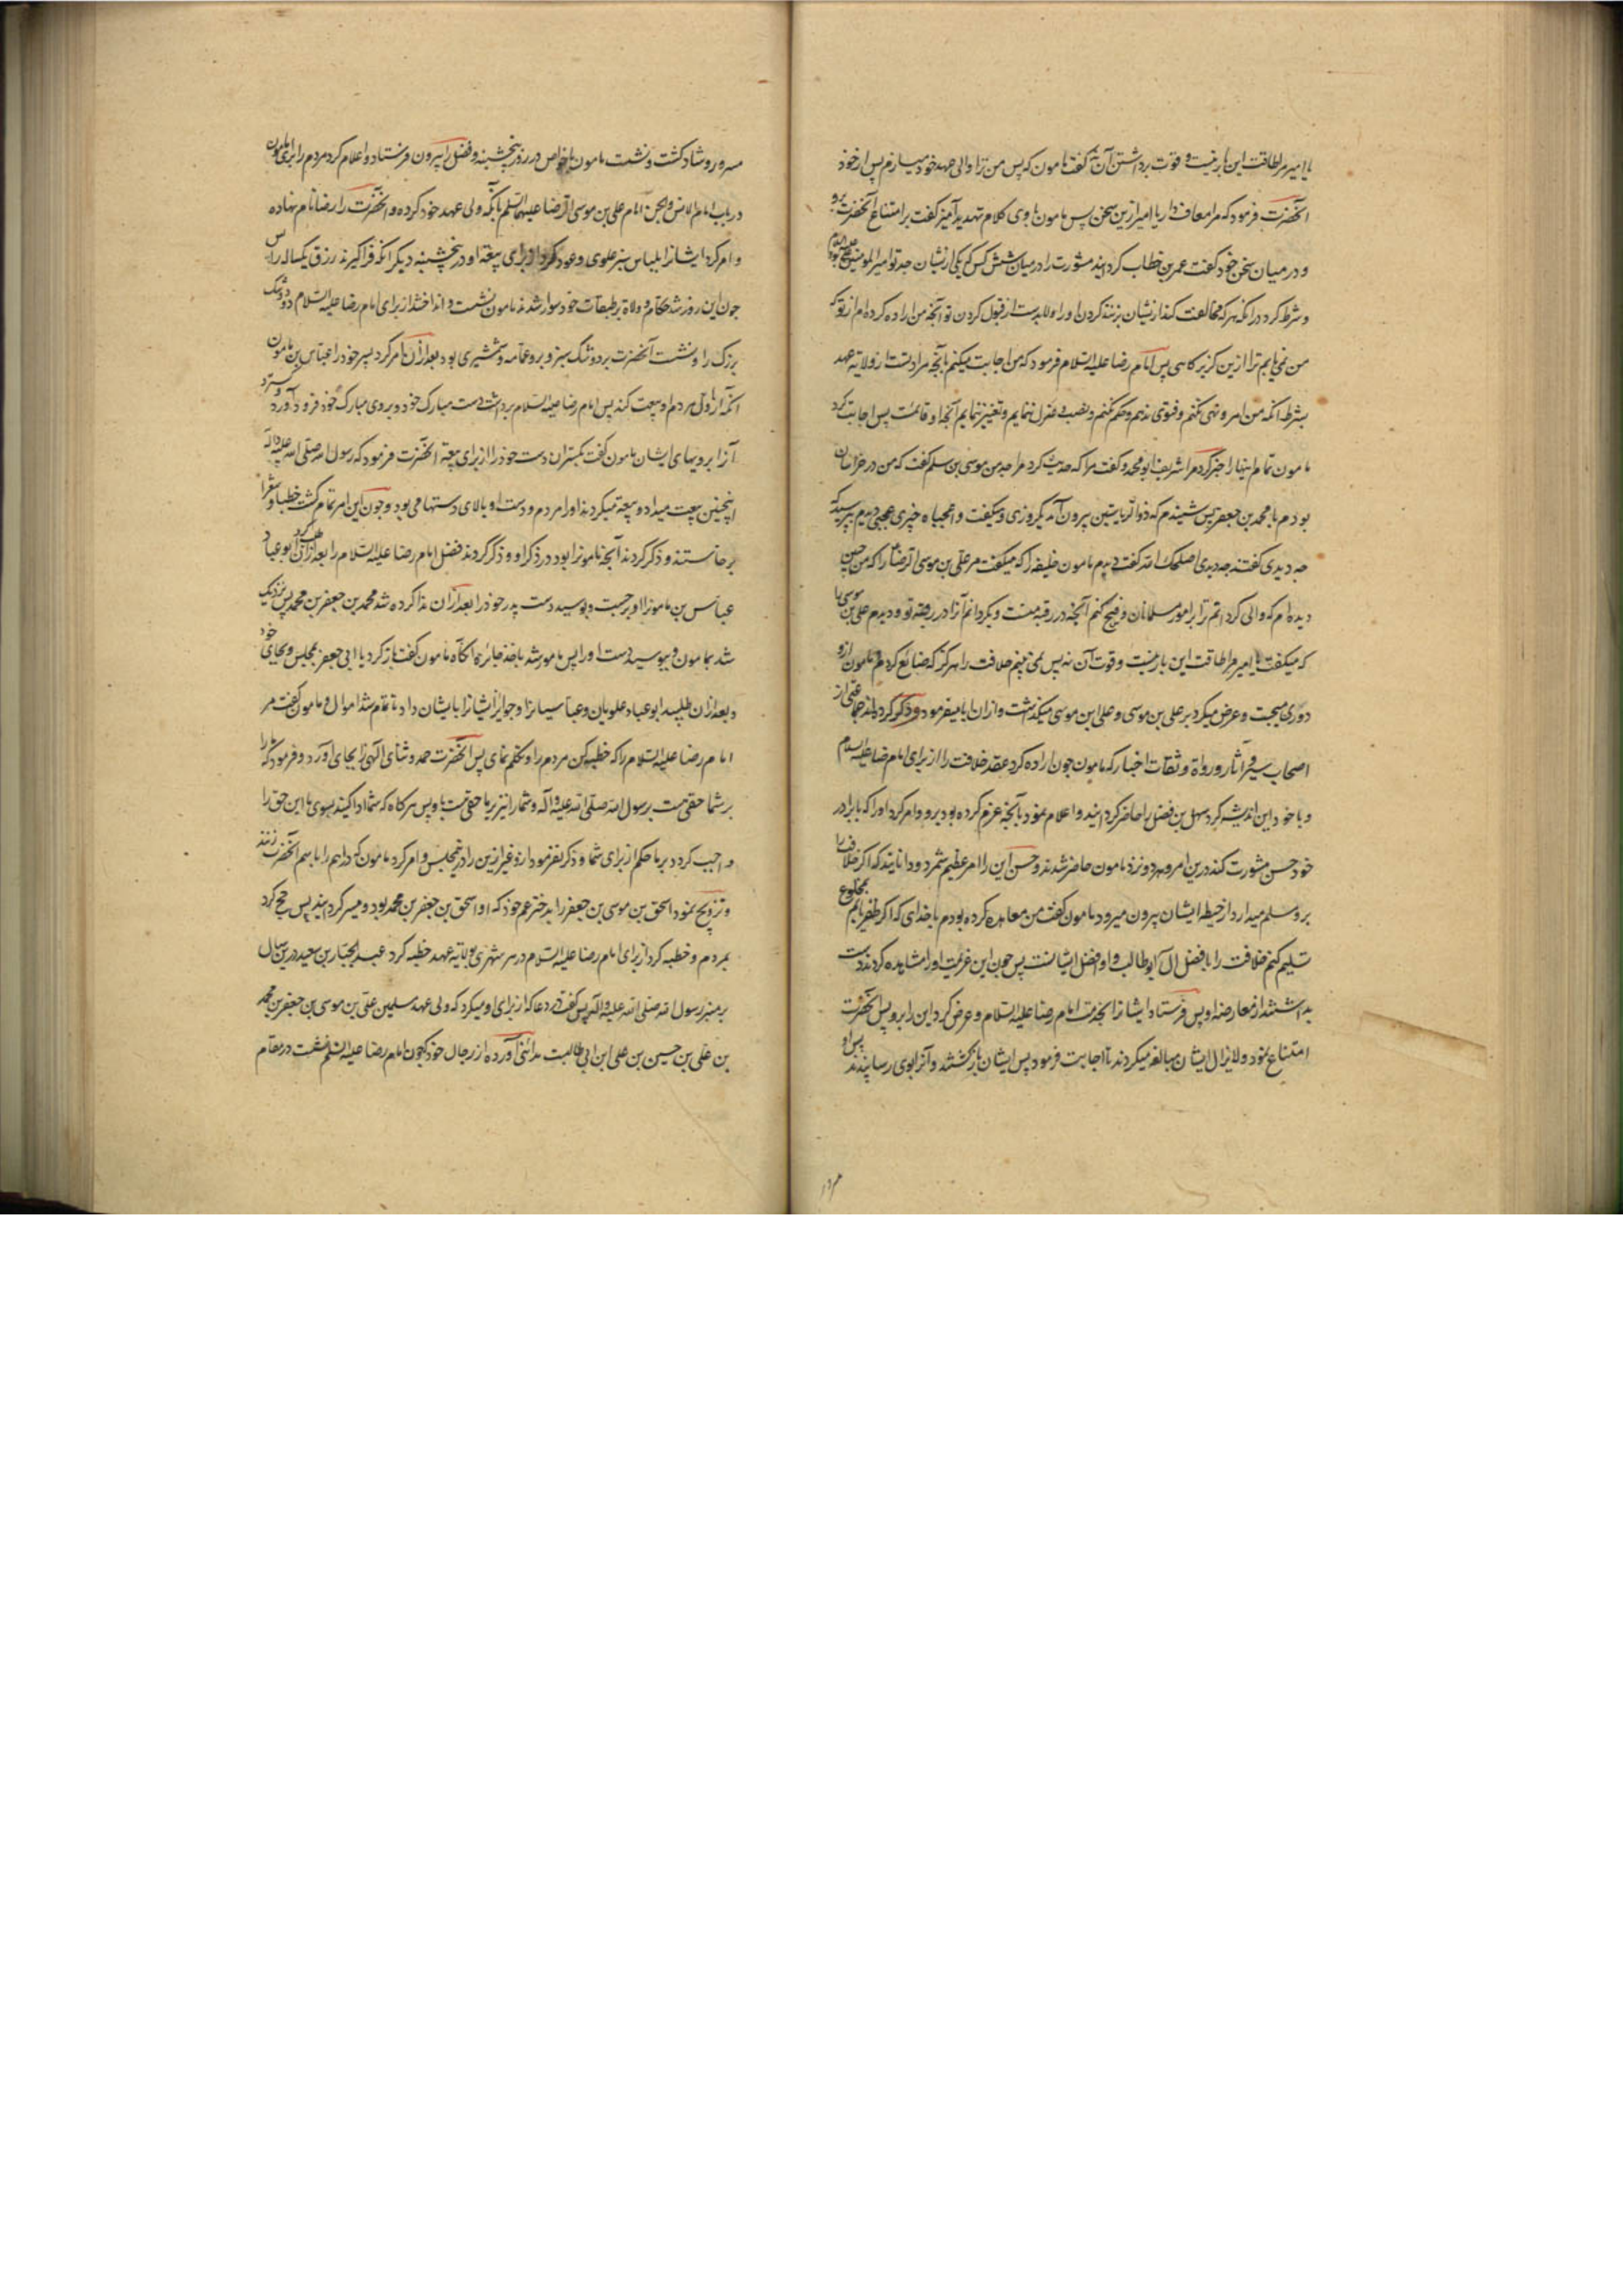 یا امیر مرا طاقت این بار نیست و قوت برداشتن آن نه گفت مامون که پس من ترا والی عهد خود میسازم پس از خود
آنحضرت فرمود که مرا معاف دار یا امیر ازین سخن پس مامون با وی کلام تهدید آمیز گفت بر امتناع آنحضرت برو
و در میان سخن خود گفت عمر بن خطاب گردانید مشورت را در میان شش کس که یکی ازیشان جد تو امیر المومنین علی بود علیه السلام
و شرط کرد در آنکه هر که مخالفت کند ازیشان بزنند گردن او را و لابدست از قبول کردن تو آنچه من اراده کرده‌ام از تو که
من نمی‌یابم ترا ازین گزیر کاهی پس امام رضا علیه السلام فرمود که من اجابت میکنم بآنچه مرادتست از ولایة عهد
بشرط آنکه من امر و نهی نکنم و فتوی ندهم و حکم نکنم و نصب و عزل ننمایم و تغییر ننمایم آنچه او قائمست پس اجابت کرد
مامون تمام اینها را خبر کرد مرا شریف ابو محمد و گفت مرا که حدیث کرد مرا جد من موسی بن سلمه گفت که من در خراسان
بودم با محمد بن جعفر پس شنیدم که ذوالریاستین بیرون آمد یکروزی و میگفت وا عجباه چیزی عجبی دیدم بپرسید که
چه دیدی گفتند چه دیدی اصلحک الله گفت دیدم مامون خلیفه را که میگفت مر علی بن موسی الرضا را که من چنین
دیده‌ام که والی گردانم ترا بر امور مسلمانان و فسخ کنم آنچه در رقبه منست و بگردانم آنرا در رقبه تو و دیدم علی بن موسی را
که میگفت یا امیر مرا طاقت این بار نیست و قوت آن نه پس نمی‌بینم خلافت را هرگز که ضائع کرده‌تر مامون ازو
دوری میجست و عرض میکرد بر علی بن موسی و علی ابن موسی میگذشت و ازان ابا میفرمود و ذکر کرده‌اند جماعتی از
اصحاب سیر و آثار و رواة و ثقات اخبار که مامون چون اراده کرد عقد خلافت را از برای امام رضا علیه السلام
و با خود این اندیشه کرد سهل بن فضل را حاضر گردانید و اعلام نمود بآنچه عزم کرده بود برو و امر کرد او را که با برادر
خود حسن مشورت کند درین امر و هر دو نزد مامون حاضر شدند و حسن این را امر عظیم شمرد و دانانید که اگر خلافت را
برو مسلم میدارد از حیطه ایشان بیرون میرود مامون گفت من معاهده کرده بودم با خدای که اگر ظفر یابم بمخلوع
تسلیم کنم خلافت را بافضل آل ابوطالب و او افضل ایشانست پس چون این عزیمت او را مشاهده کردند دست
بداشتند از معارضه او پس فرستاد ایشانرا بخدمت امام رضا علیه السلام و عرض کرد این را برو پس آنحضرت
امتناع نمود و لایزال ایشان مبالغه میکردند تا اجابت فرمود پس ایشان بازگشتند و آنرا بوی رسانیدند پس او
مسرور و شاد گشت و نشست مامون با خواص در روز پنجشنبه و فضل را بیرون فرستاد و اعلام کرد مردم را برای مامون
در باب امام الانس والجن امام علی بن موسی الرضا علیهما السلم بآنکه ولی عهد خود کرده و آنحضرت را رضا نام نهاده
و امر کرد ایشانرا بلباس سبز علوی و عود کرد از برای بیعة او در پنجشنبه دیگر آنکه فرا گیرند رزق یکساله را پس
چون این روز شد حکام و ولاة بر طبقات خود سوار شدند مامون نشست و انداختند از برای امام رضا علیه السلام دو تشک
بزرگ را و نشست آنحضرت بر دو تشک سبز و برو عمامه و شمشیری بود بعد ازان امر کرد پسر خود را عباس بن مامون
آنکه از اول مردم او بیعت کند پس امام رضا علیه السلام برداشت دست مبارک خود و بروی مبارک خود فرود آورد و سترد
آنرا برویهای ایشان مامون گفت بگستران دست خود را از برای بیعة آنحضرت فرمود که رسول الله صلی الله علیه و آله
اینچنین بیعت میداد و بیعة میکردند او را مردم و دست او بالای دستها می‌بود و چون این امر تمام گشت خطبا و شعرا
برخاستند و ذکر کردند آنچه مامونرا بود در ذکر او و ذکر کردند فضل امام رضا علیه السلام را بعد ازان طلب کرد ابو عباد
عباس بن مامونرا او برجست و بوسید دست پدر خود را بعد ازان ندا کرده شد محمد بن جعفر بن محمد پس نزدیک
شد بمامون و نبوسید دست او را پس مامور شد باخذ جائزه آنگاه مامون گفت باز گرد یا ابی جعفر بمجلس و بجای خود
و بعد ازان طلبید ابو عباد علویان و عباسیانرا و جوائز ایشانرا بایشان داد تا تمام شد اموال و مامون گفت مر
امام رضا علیه السلام را که خطبه کن مردم را و تکلم نمای پس آنحضرت حمد و ثنای الهی را بجای آورد و فرمود که ما را
بر شما حقیست برسول الله صلی الله علیه و آله و شما را نیز بر ما حقیست باو پس هرگاه که شما ادا کنید بسوی ما این حق را
واجب گردد بر ما حکم از برای شما و ذکر نفرمود ازو غیر ازین را در آنمجلس و امر کرد مامون که دراهم را باسم آنحضرت زنند
و تزویج نمود اسحق بن موسی بن جعفر را بدختر عم خود که او اسحق بن جعفر بن محمد بود و میسر گردانید پس حج کرد
بمردم و خطبه کرد از برای امام رضا علیه السلام در هر شهری بولایة عهد خطبه کرد عبد الجبار بن سعید درین سال
بر منبر رسول الله صلی الله علیه و آله پس گفت در دعا که از برای او میکرد که ولی عهد مسلمین علی بن موسی بن جعفر بن محمد
بن علی بن حسین بن علی ابن ابی طالبست مدائنی آورده از رجال خود که چون امام رضا علیه السلم نشست در مقام